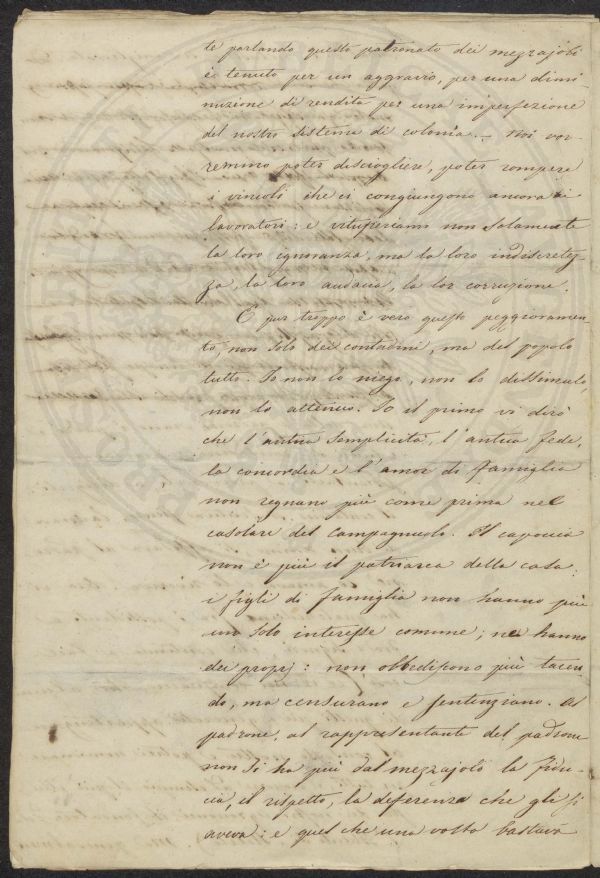 te parlando questo patronato dei mezzajoli
è tenuto per un aggravio, per una dimi-
nuzione di rendita per una imperfezione
del nostro sistema di colonìa. - Noi vor-
remmo poter disciogliere, poter rompere
i vincoli che ci congiungono ancora ai
lavoratori: e vituperiam non solamente
la loro ignoranza, ma la loro indiscretez-
za, la loro audacia, la lor corruzione.
E pur troppo è vero questo peggioramen-
to, non solo dei contadini, ma del popolo
tutto. Io non lo niego, non lo dissimulo,
non lo attenuo. Io il primo vi dirò
che l'antica semplicità, l'antica fede,
la concordia e l'amor di famiglia
non regnano più come prima nel
casolare del campagnuolo. Il capoccia
non è più il patriarca della casa:
i figli di famiglia non hanno più
uno solo interesse comune; ne hanno
dei proprj: non obbediscono più tacen-
do, ma censurano e sentenziano. Al
padrone, al rappresentante del padrone
non si ha più dal mezzajolo la fidu-
cia, il rispetto, la deferenza che gli si
aveva: e quel che una volta bastava